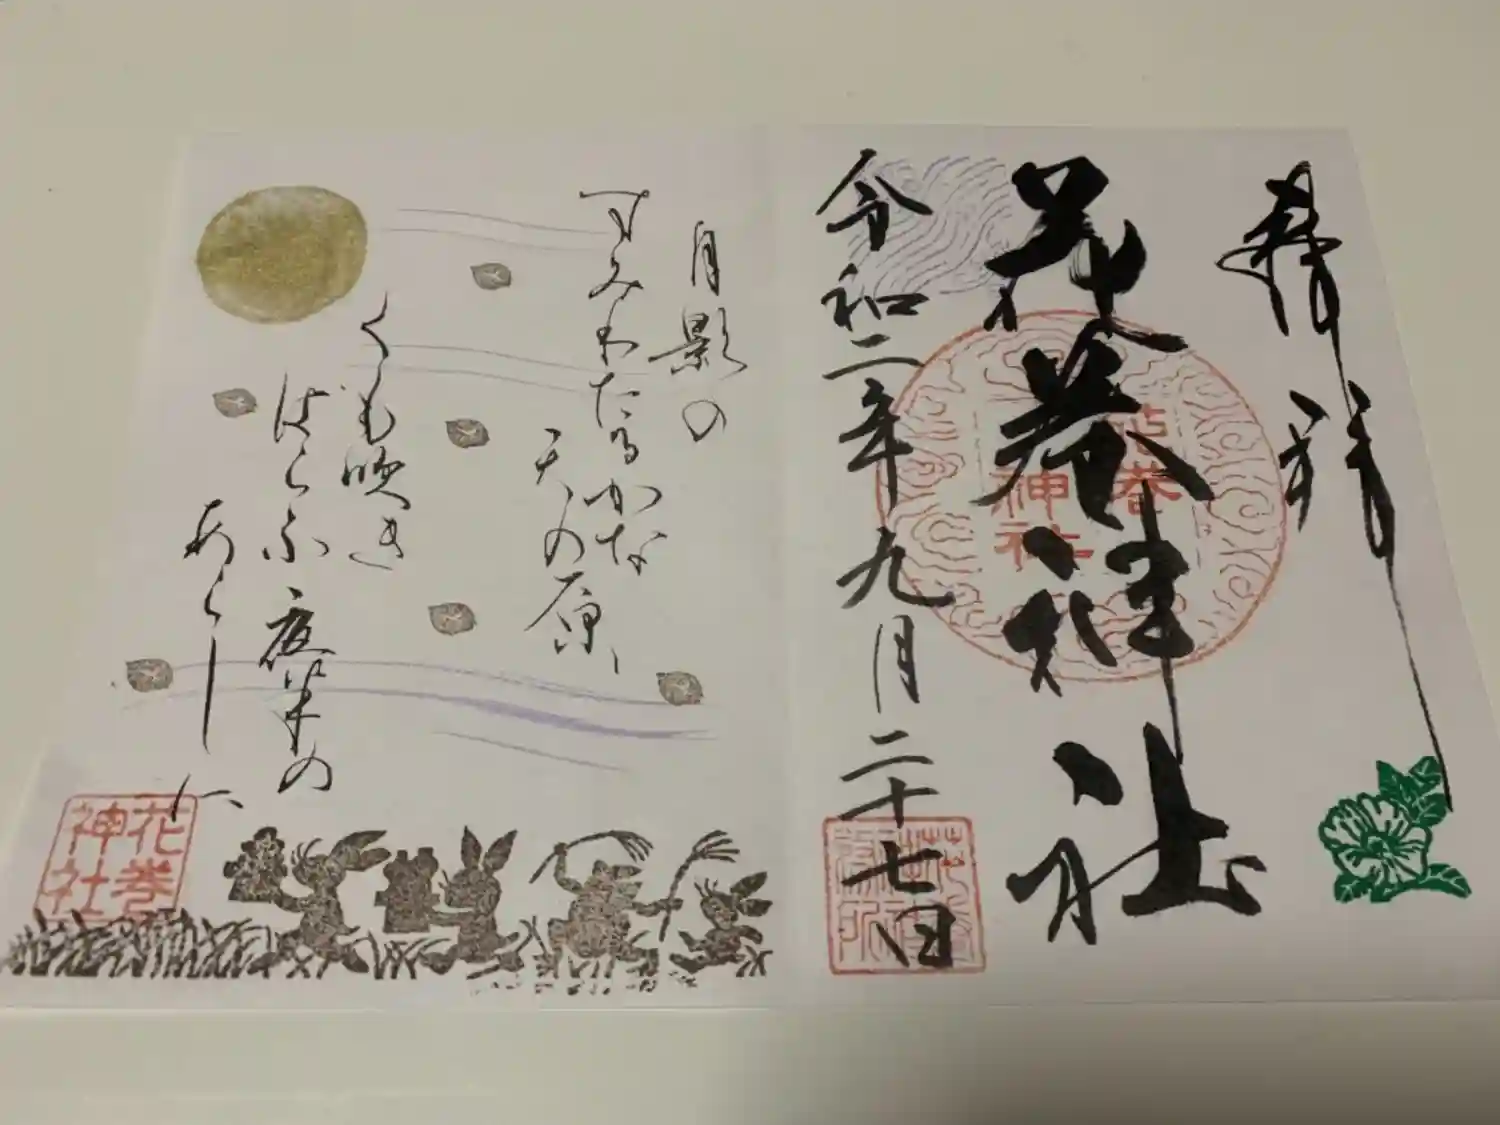 奉拝
花巻
神社
花巻神社
令和二年九月二十七日
月影の
すみわたるかな
天の原、
くも吹き
はらふ夜半の
あらしに、
花巻
神社